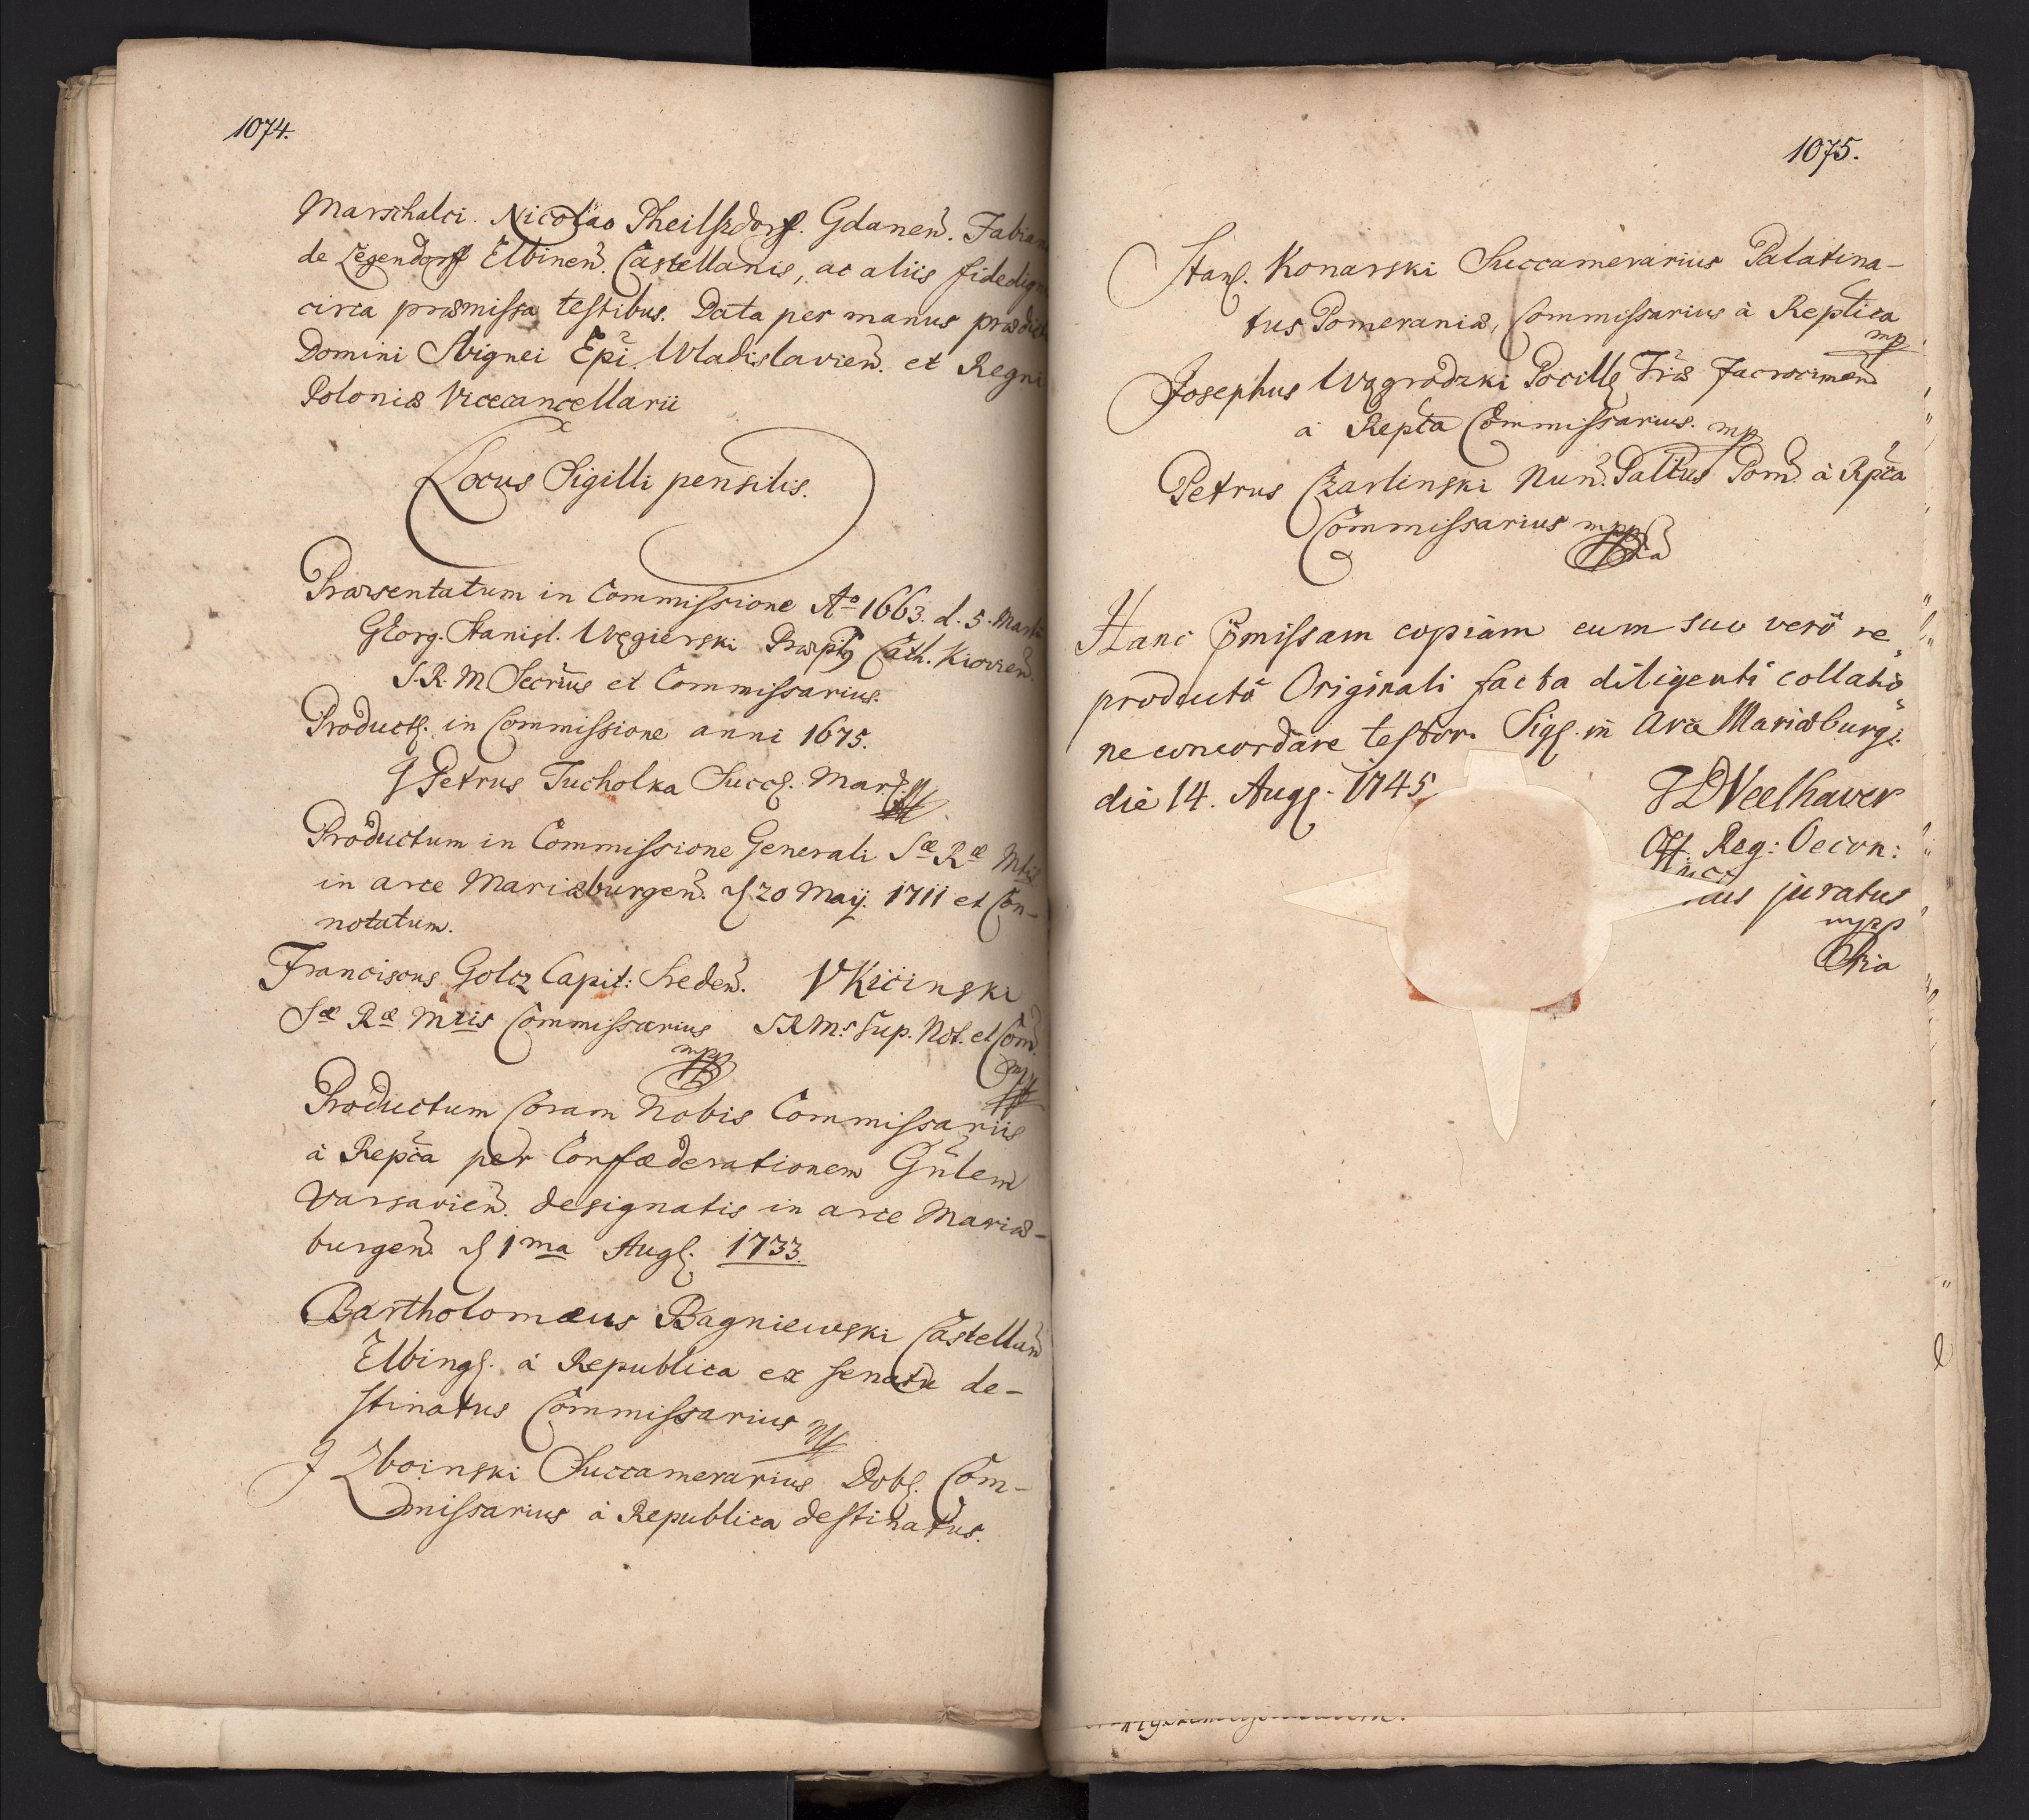 1074.
Marschalci. Nicolao Pheilszdorff. Gdanen̄. Fabian
de Legendorff Elbinen̄. Castellanis, ac aliis fidedign
circa præmissa testibus. Data per manus prædict
Domini Sbignei Ep̄i. Wladislavien̄. et Regni
Poloniæ Vicecancellarii
Locus Sigilli pensilis.
Præsentatum in Commissione Aō 1663. d. 5. Marti
Georg. Stanisl. Węgierski Præp̄t9 Cath. Kiovien̄.
S. R. M Secr̄ius et Commissarius.
Product. in Commissione anni 1675.
J Petrus Tucholka Succ. Mar.
Productum in Commissione Generali Sæ Ræ Mtis
in arce Mariæburgen̄. d 20 Maij. 1711 et Con-
notatum.
Franciscus Goltz Capit: Sreden̄. V Kicinski
Sæ Ræ Mtis Commissarius SRMs Sup. Not. et Com̄.
mpp
Productum Coram Nobis Commissariis
à Rep̄ca per Confæderationem Gn̄lem
Varsavien̄. designatis in arce Mariæ-
burgen̄. d 1ma Aug. 1733.
Bartholomæus Bagniewski Castellan̄
Elbing. à Republica ex Senatu de-
stinatus Commissarius
J Zboinski Succamerarius Dob. Com-
missarius à Republica destinatus.
1075.
Stan. Konarski Succamerarius Palatina-
tus Pomeraniæ, Commissarius à Replica
mp
Josephus Wągrodzki Pocill
à Rep̄ta Commissarius. mp
Petrus Czarlinski Nun̄. Paltus Pom̄. à Rp̄ca
Commissarius mpp
Hanc p̄missam copiam cum suo verō re„
productō Originali facta diligenti collatio„
ne concordare testor. Sig. in Arce Mariæburg:
die 14. Aug. 1745
JD Veelhaver
Off. Reg: Oecon:
ius juratus
mpp
ria